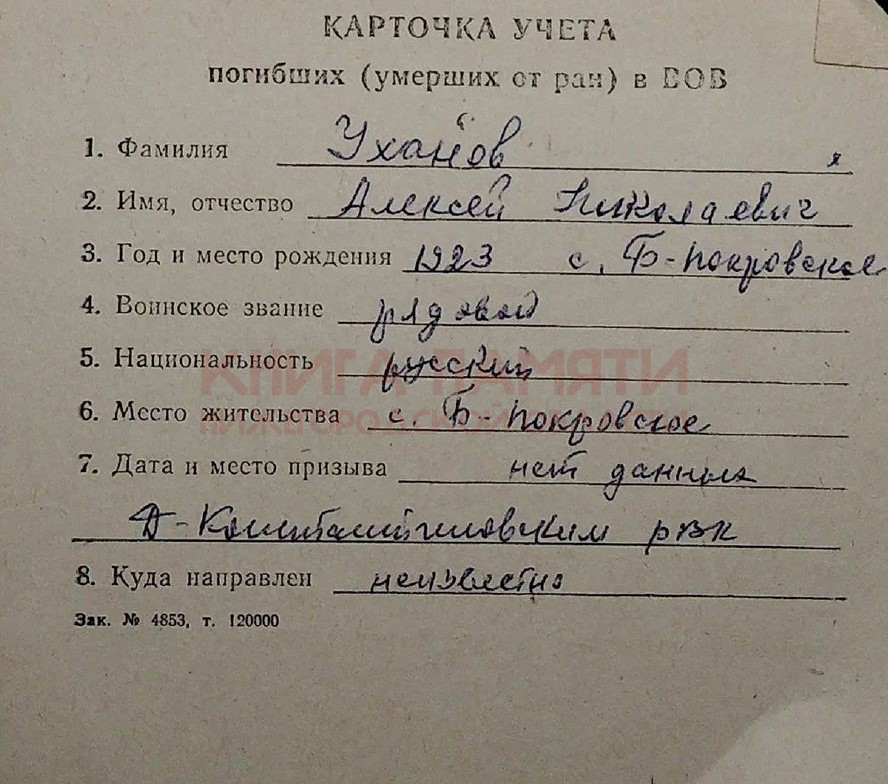 КАРТОЧКА УЧЕТА
погибших (умерших от ран) в ВОВ
1. Фамилия Уханов
2. Имя, отчество Алексей Николаевич
3. Год и место рождения 1923 с. Б-Покровское
4. Воинское звание рядовой
5. Национальность русский
КНИГА ПАМЯТИ
6. Место жительства с. Б-Покровское
НИЖЕГОРОДСКОЙ
7. Дата и место призыва нет данных
Д-Константиновским РВК
8. Куда направлен неизвестно
Зак. № 4853, т. 120000